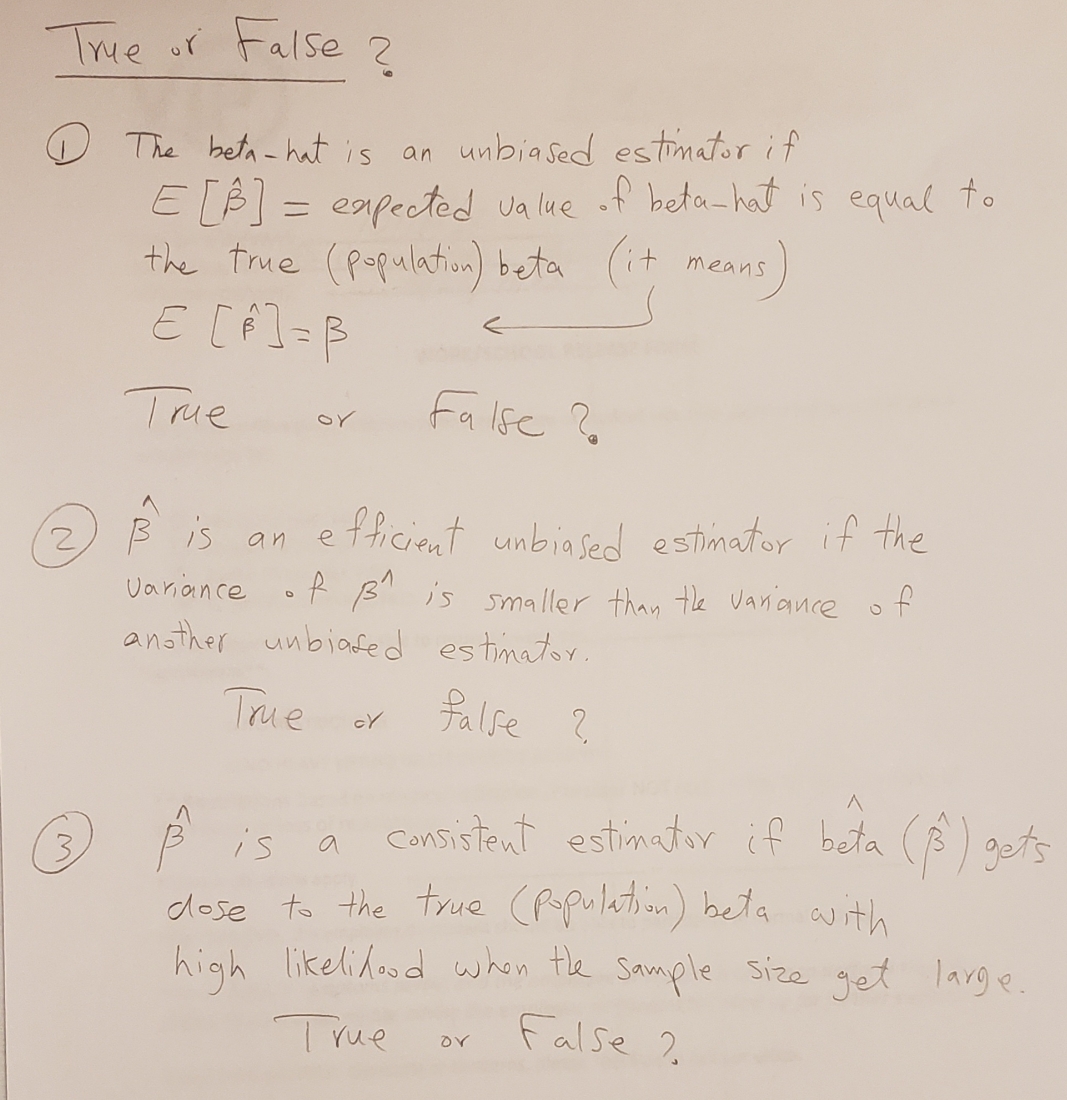 True or False ?
① The beta-hat is an unbiased estimator if
E [β̂] = expected value of beta-hat is equal to
the true (population) beta (it means)
E [β̂] = β
True or False ?
② β̂ is an efficient unbiased estimator if the
variance of β^ is smaller than the variance of
another unbiased estimator.
True or false ?
③ β̂ is a consistent estimator if betâ (β̂) gets
close to the true (population) beta with
high likelihood when the sample size get large.
True or False ?